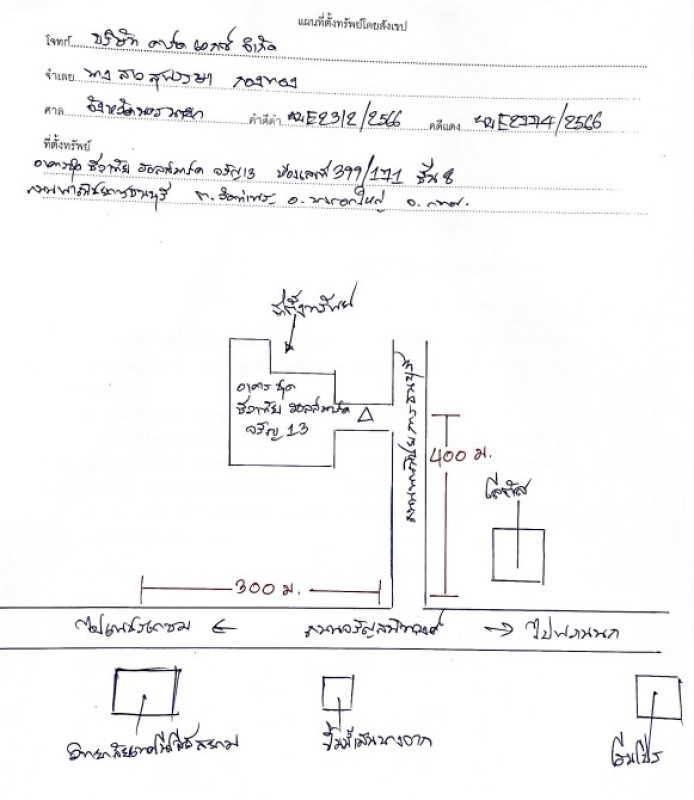 แผนที่ตั้งทรัพย์โดยสังเขป
โจทก์ บริษัท จำกัด
จำเลย นางสาวสุพรรษา กองทอง
ศาล จังหวัดนครนายก คดีดำ ผบE2312/2566 คดีแดง ผบE2774/2566
ที่ตั้งทรัพย์
อาคารชุด ชีวาทัย ฮอลล์มาร์ค จรัญ13 ห้องเลขที่ 399/171 ชั้น 8
ถนนพาณิชยการธนบุรี ต.วัดท่าพระ อ.บางกอกใหญ่ จ.กทม.
ที่ตั้งทรัพย์
อาคารชุด
ชีวาทัย ฮอลล์มาร์ค
จรัญ 13
ถนนพาณิชยการธนบุรี
400 ม.
โลตัส
300 ม.
ไปเพชรเกษม ← ถนนจรัญสนิทวงศ์ → ไปพรานนก
วิทยาลัยเทคโนโลยีสยาม
ปั๊มน้ำมันบางจาก
โฮมโปร